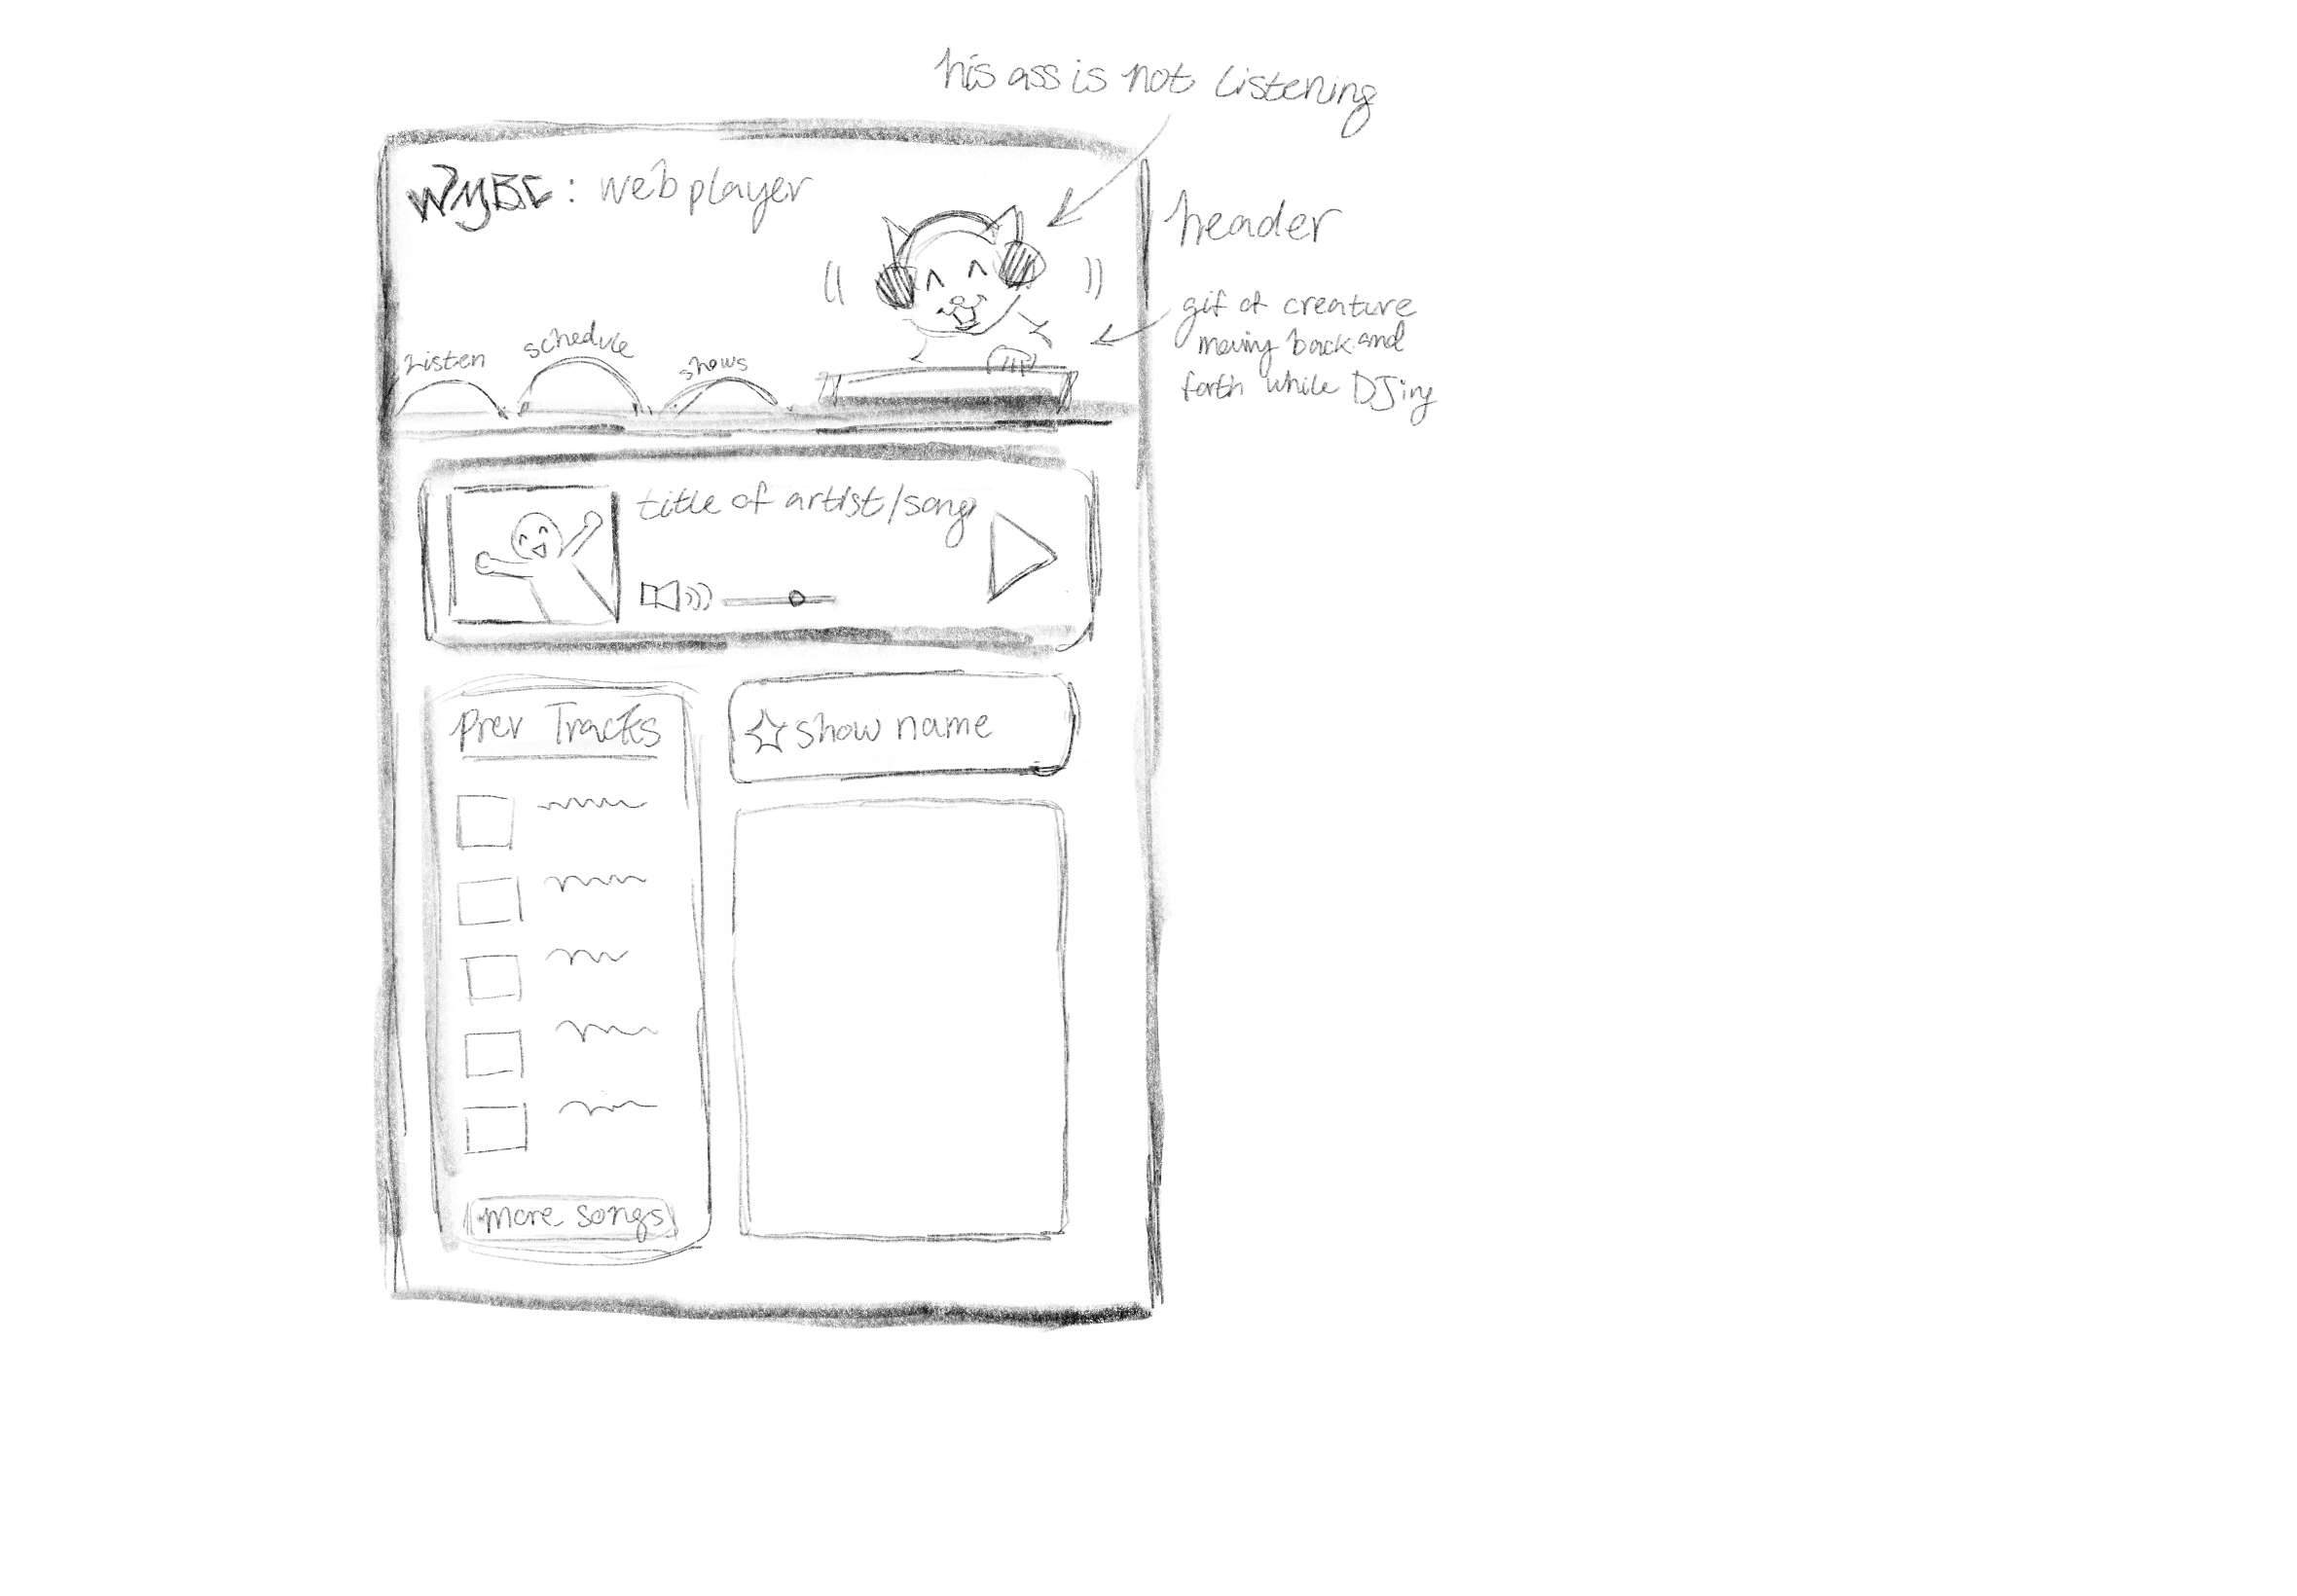 his ass is not listening
WYBC : webplayer
header
gif of creature
moving back and
forth while DJing
Listen
schedule
shows
title of artist/song
prev Tracks
show name
more songs